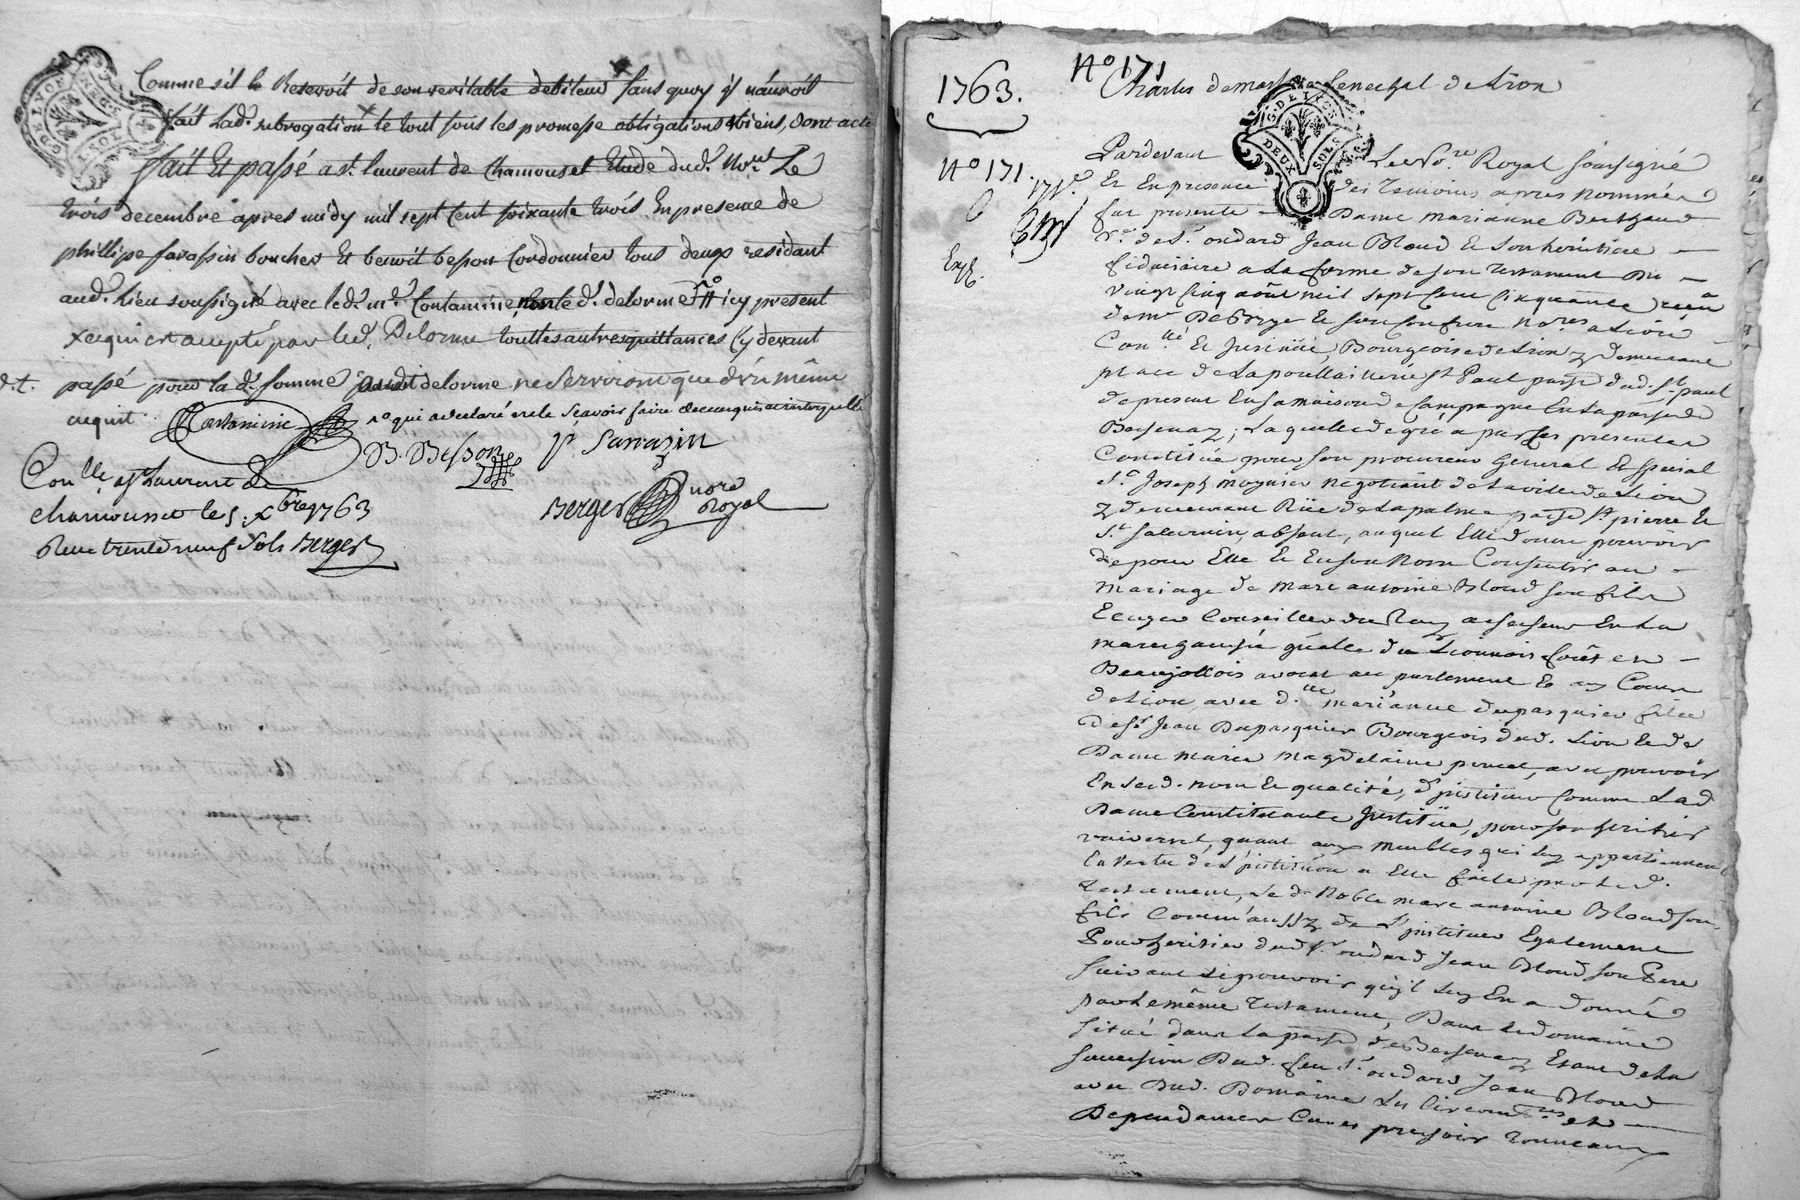 Comme sil le Recevoit de son veritable debiteur sans quoy il nauroit
fait Lad.e subrogation le tout sous les promesse obligations biens, dont acte
fait Et passé a St. Laurent de Chamouset Etude dud. No.re Le
trois decembre apres midy mil sept Cent soixante trois En presence de
phillipe sarassin boucher Et benoit besson Cordonnier tous deux residant
aud. Lieu soussigné avec led. mr. Contamine led. delorme icy present
ce qui est accepté par led. Delorme touttes autres quittances Cy devant
passé pour la d. somme delorme ne Serviront que d'un même
acquit
ro qui a declaré ne le Scavoir faire de ce enquis
Contamine
B. Besson
P. Sarrazin
Con.lle a St Laurent de
chamousset le 5. xbre 1763
Reçu trente neuf sols Berger
Berger nore Royal
G. DE LYON
DEUX SOLS
1763.
No 171
Charles demasso Senechal de Lion
No 171.
Pardevant Le No.re Royal soussigné
Et En presence des Temoins apres nommés
fut presente Dame marianne Berthaud
Ve. de Sr. oudard Jean Bloud Et son heritiere
fiduciaire a La forme de son Testament du
vingt Cinq août mil sept Cent Cinquante reçu
de Me Debrye Et son Confrere No.res a Lion
Con.llé Et Insinüé, Bourgeoise de Lion y demeurant
place de La poullaillerie St. Paul
de present En sa maison de Campagne En la parr.sse de
Bessenay; Laquelle de gré a par ces presentes
Constitué pour son procureur General Et special
Sr. Joseph moynier negotiant de La ville de Lion
y demeurant Rüe de La palme parr.sse St. pierre Et
St. Saturnin, absent, auquel Elle donne pouvoir
de pour Elle Et En son Nom Consentir au
mariage de marc antoine Bloud son fils
Ecuyer Conseiller du Roy assesseur En La
marechaussée g'ñalle du Lionnois forêt et
Beaujollois avocat au parlement Et aux Cours
de Lion, avec d.lle marianne dupasquier fille
de Sr. Jean Dupasquier Bourgeois dud. Lion Et de
Dame marie magdelaine poncet, avec pouvoir
En sesd. nom Et qualité, d'instituer Comme Lad.
Dame Constituante Institüe, pour son heritier
universel, quant aux meubles qui luy appartiennent
En vertu de L'institution a Elle faite par Led.
Testament, Le d. Noble marc antoine Bloud son
fils Comm'aussy de L'instituer Egalement
Pour heritier dud. Sr. oudard Jean Bloud son Pere
suivant Le pouvoir qu'il luy En a donné
par Le même Testament, Dans Le domaine
situé dans La parr.sse de Bessenay Etant de La
succession Dud. feu Sr. oudard Jean Bloud
avec Dud. Domaine Les Circon.ces et
Dependances Cuves pressoirs Tonneaux